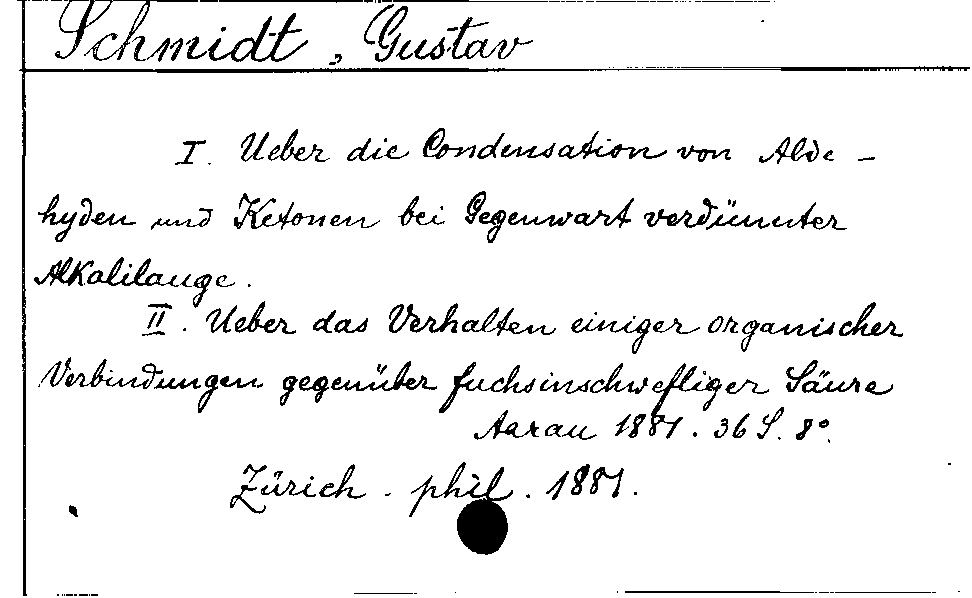 Schmidt, Gustav
I. Ueber die Condensation von Alde-
hyden und Ketonen bei Gegenwart verdünnter
Alkalilauge.
II. Ueber das Verhalten einiger organischer
Verbindungen gegenüber fuchsinschwefliger Säure
Aarau 1881. 36 S. 8°.
Zürich. phil. 1881.